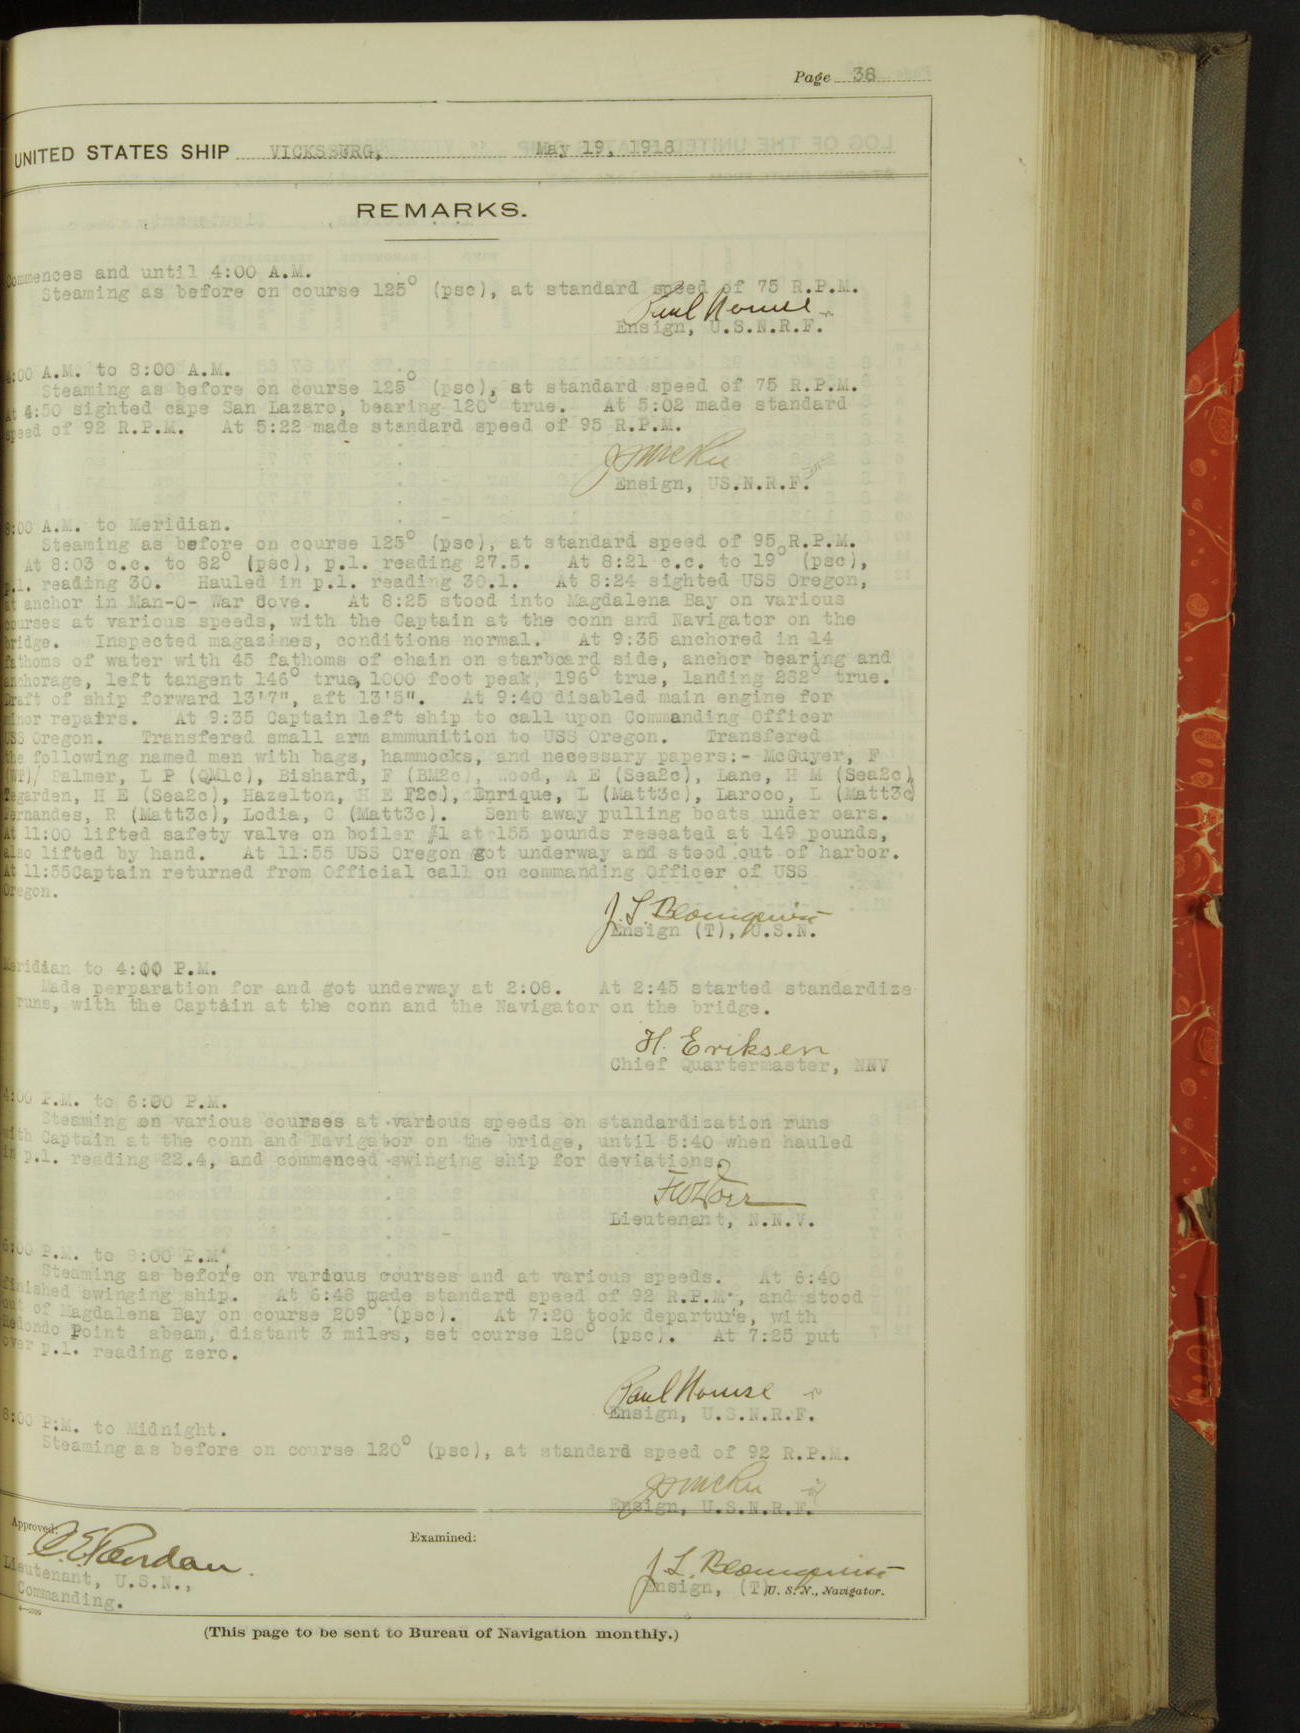 Page 38
UNITED STATES SHIP VICKSBURG, May 19, 1918
REMARKS.
Commences and until 4:00 A.M.
Steaming as before on course 125° (psc), at standard speed of 75 R.P.M.
Paul
Ensign, U.S.N.R.F.
4:00 A.M. to 8:00 A.M.
Steaming as before on course 125° (psc), at standard speed of 75 R.P.M.
At 4:50 sighted cape San Lazaro, bearing 120° true. At 5:02 made standard
speed of 92 R.P.M. At 5:22 made standard speed of 95 R.P.M.
Ensign, US.N.R.F.
8:00 A.M. to Meridian.
Steaming as before on course 125° (psc), at standard speed of 95 R.P.M.
At 8:03 c.c. to 82° (psc), p.l. reading 27.5. At 8:21 c.c. to 19° (psc),
p.l. reading 30. Hauled in p.l. reading 30.1. At 8:24 sighted USS Oregon,
at anchor in Man-O- War Cove. At 8:25 stood into Magdalena Bay on various
courses at various speeds, with the Captain at the conn and Navigator on the
bridge. Inspected magazines, conditions normal. At 9:35 anchored in 14
fathoms of water with 45 fathoms of chain on starboard side, anchor bearing and
anchorage, left tangent 146° true, 1000 foot peak, 196° true, landing 282° true.
Draft of ship forward 13'7", aft 13'5". At 9:40 disabled main engine for
minor repairs. At 9:35 Captain left ship to call upon Commanding Officer
USS Oregon. Transfered small arm ammunition to USS Oregon. Transfered
the following named men with bags, hammocks, and necessary papers:- McGuyer, F
(WT)/ Palmer, L P (QM1c), Bishard, F (BM2c), Wood, A E (Sea2c), Lane, H M (Sea2c),
Tegarden, H E (Sea2c), Hazelton, H E F2c), Enrique, L (Matt3c), Laroco, L (Matt3c)
Fernandes, R (Matt3c), Lodia, C (Matt3c). Sent away pulling boats under oars.
At 11:00 lifted safety valve on boiler #1 at 155 pounds reseated at 149 pounds,
also lifted by hand. At 11:55 USS Oregon got underway and stood out of harbor.
At 11:55Captain returned from Official call on commanding Officer of USS
Oregon.
J. L. Blomquist
Ensign (T), U.S.N.
Meridian to 4:00 P.M.
Made perparation for and got underway at 2:08. At 2:45 started standardize
runs, with the Captain at the conn and the Navigator on the bridge.
H. Eriksen
Chief Quartermaster, NNV
4:00 P.M. to 6:00 P.M.
Steaming on various courses at various speeds on standardization runs
with Captain at the conn and Navigator on the bridge, until 5:40 when hauled
in p.l. reading 22.4, and commenced swinging ship for deviations.
Lieutenant, N.N.V.
6:00 P.M. to 8:00 P.M.
Steaming as before on various courses and at various speeds. At 6:40
finished swinging ship. At 6:48 made standard speed of 92 R.P.M., and stood
out of Magdalena Bay on course 209° (psc). At 7:20 took departure, with
Redondo Point abeam, distant 3 miles, set course 120° (psc). At 7:25 put
over p.l. reading zero.
Paul
Ensign, U.S.N.R.F.
8:00 P.M. to Midnight.
Steaming as before on course 120° (psc), at standard speed of 92 R.P.M.
Ensign, U.S.N.R.F.
Approved:
Examined:
Lieutenant, U.S.N.,
Commanding.
J. L. Blomquist
Ensign, (T) U. S. N., Navigator.
(This page to be sent to Bureau of Navigation monthly.)